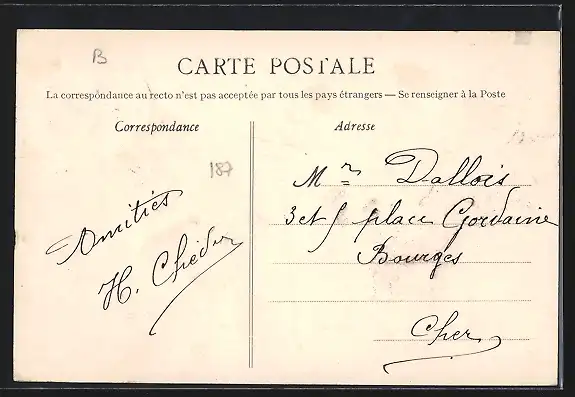 B
CARTE POSTALE
La correspondance au recto n'est pas acceptée par tous les pays étrangers — Se renseigner à la Poste
Correspondance
Adresse
187
Amitiés
H.
Mr Dallois
3 et 5 place Gordaine
Bourges
Cher